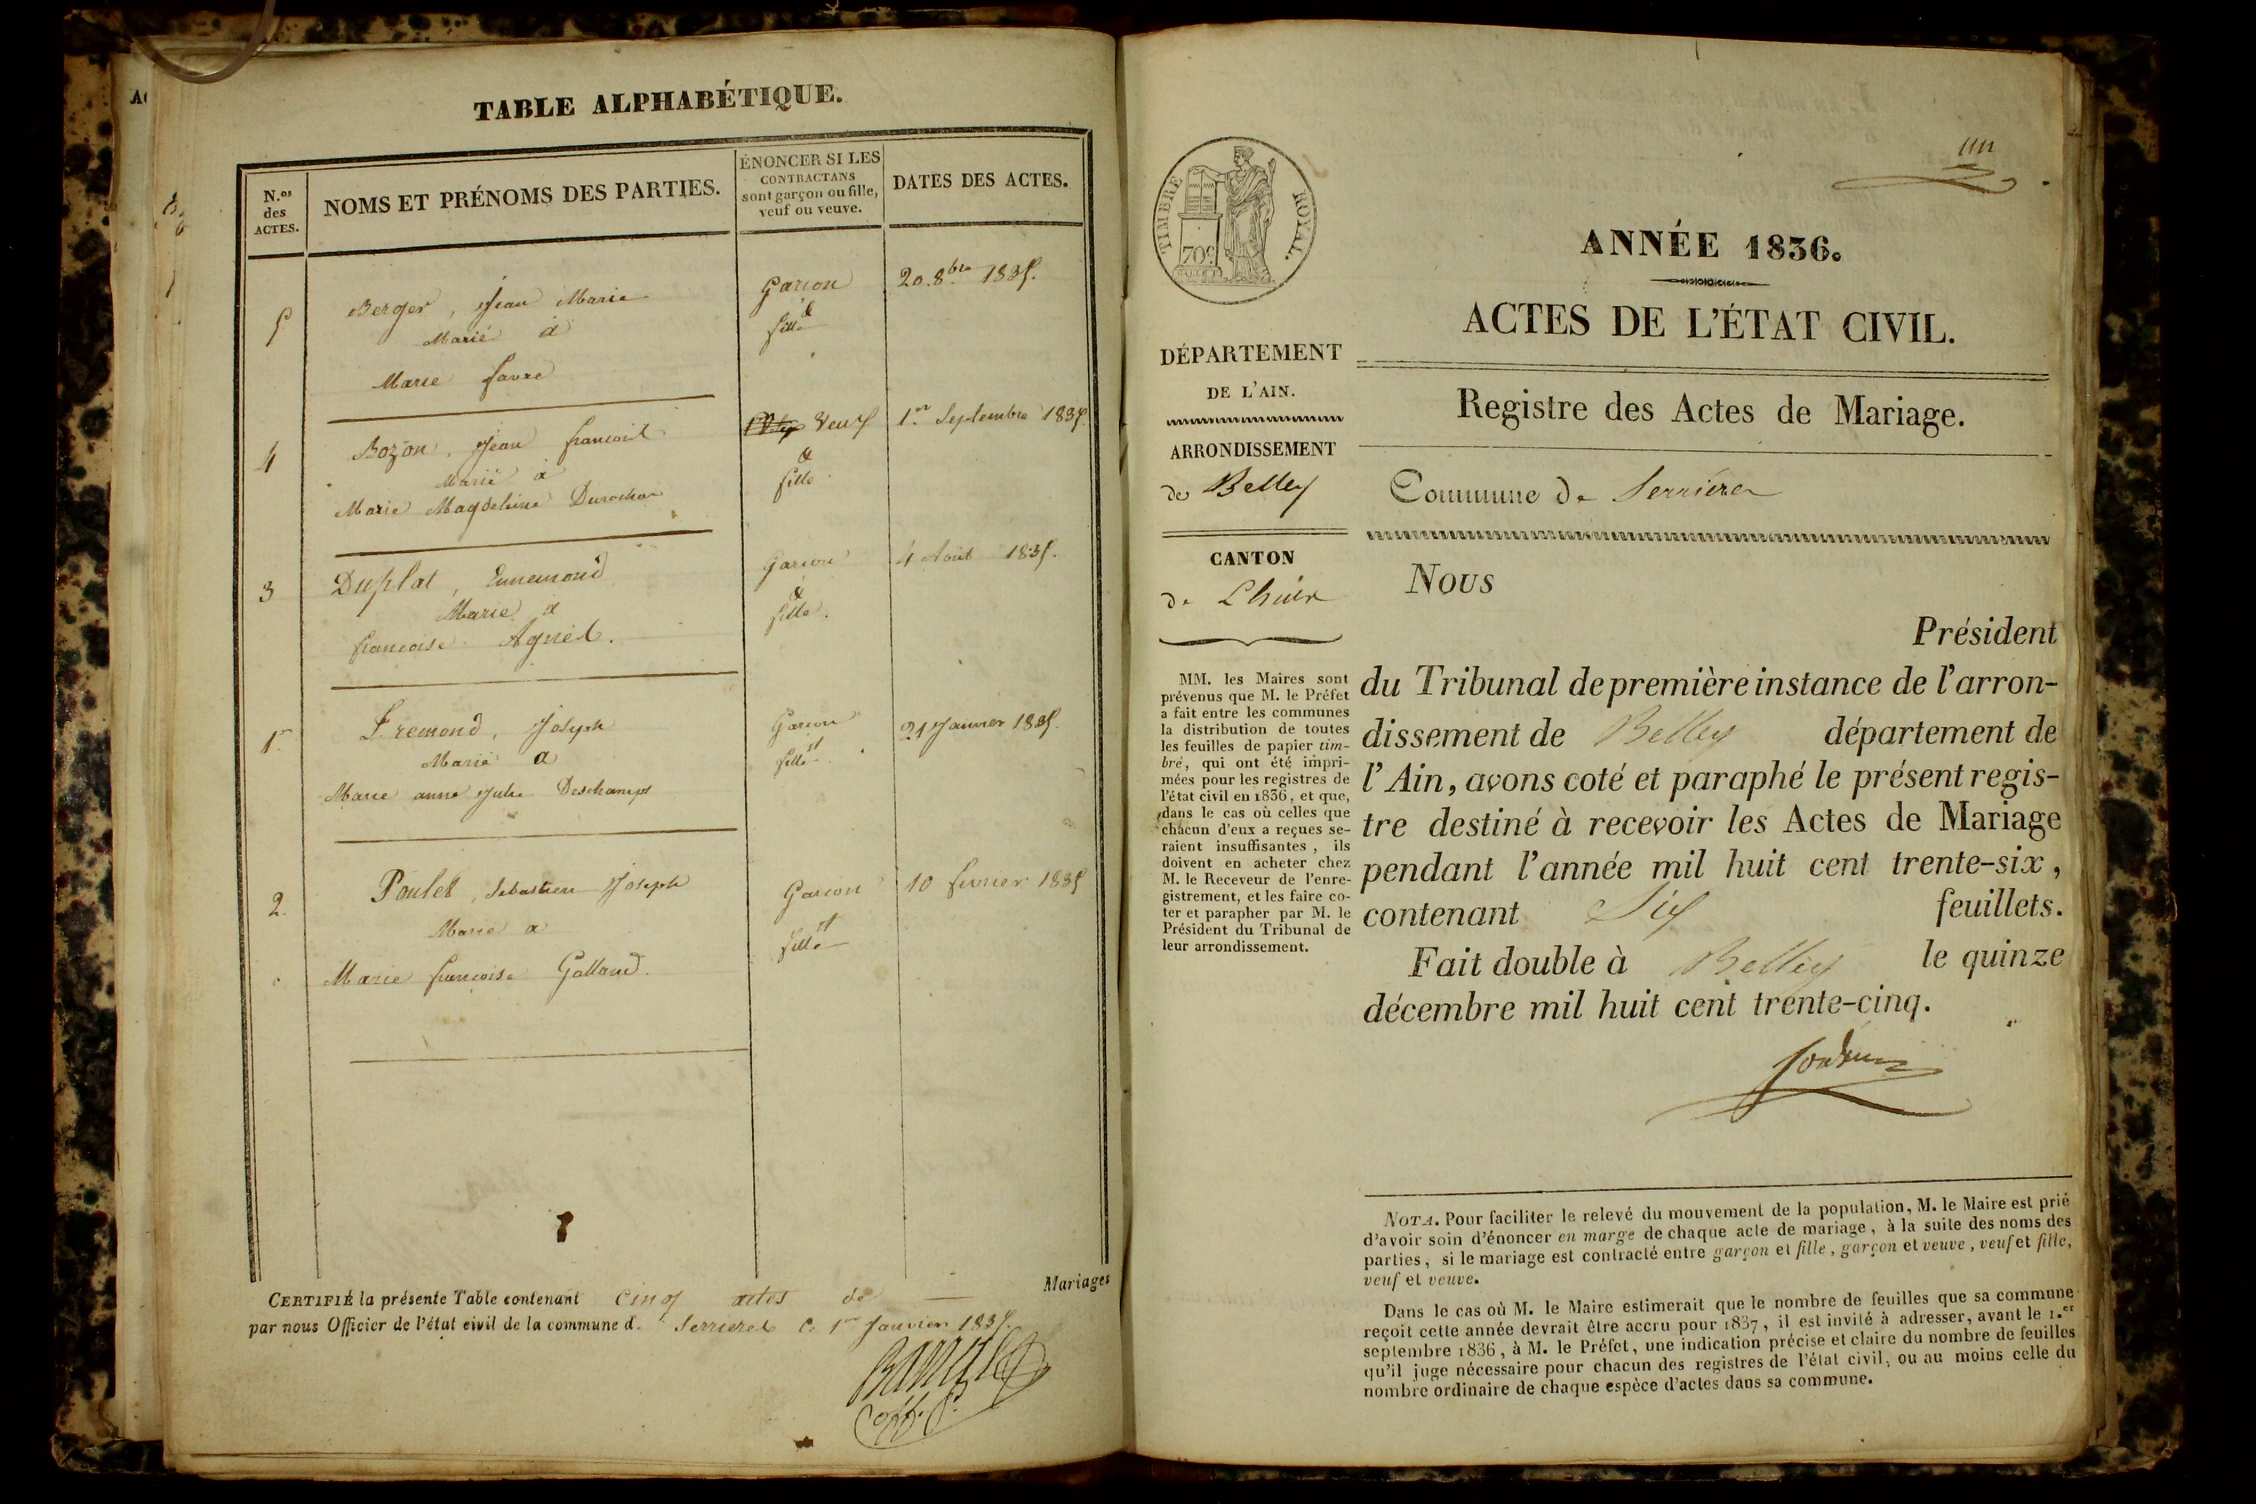 TABLE ALPHABÉTIQUE.
N.os des ACTES.
NOMS ET PRÉNOMS DES PARTIES.
ÉNONCER SI LES
CONTRACTANS
sont garçon ou fille,
veuf ou veuve.
DATES DES ACTES.
5 Berger, Jean Marie Garcon 20. 8bre 1835.
Marié à & fille
Marie favre
4 Bozon, Jean francois Veuf 1er Septembre 1835.
Marié à & fille
Marie Magdeleine
3 Duplat, Ennemond Garcon 4 Aout 1835.
Marié à & fille.
francoise Agniel.
1er Fremond, Joseph Garcon 21 Janvier 1835.
Marié à et fille
Marie anne Julie Deschamps
2. Poulet, Sebastien Joseph Garcon 10 fevrier 1835
Marié à et fille
Marie francoise Golland.
CERTIFIÉ la présente Table contenant cinq actes de Mariages
par nous Officier de l'état civil de la commune d. Serrieres Ce 1er Janvier 183
un
TIMBRE ROYAL.
70c
ANNÉE 1836.
ACTES DE L'ÉTAT CIVIL.
Registre des Actes de Mariage.
DÉPARTEMENT
DE L'AIN.
ARRONDISSEMENT
de Belley
CANTON
de Lhuis
MM. les Maires sont
prévenus que M. le Préfet
a fait entre les communes
la distribution de toutes
les feuilles de papier tim-
bré, qui ont été impri-
mées pour les registres de
l'état civil en 1836, et que,
dans le cas où celles que
chacun d'eux a reçues se-
raient insuffisantes, ils
doivent en acheter chez
M. le Receveur de l'enre-
gistrement, et les faire co-
ter et parapher par M. le
Président du Tribunal de
leur arrondissement.
Commune de Serrières
Nous
Président
du Tribunal de première instance de l'arron-
dissement de Belley département de
l'Ain, avons coté et paraphé le présent regis-
tre destiné à recevoir les Actes de Mariage
pendant l'année mil huit cent trente-six,
contenant Six feuillets.
Fait double à Belley le quinze
décembre mil huit cent trente-cinq.
NOTA. Pour faciliter le relevé du mouvement de la population, M. le Maire est prié
d'avoir soin d'énoncer en marge de chaque acte de mariage, à la suite des noms des
parties, si le mariage est contracté entre garçon et fille, garçon et veuve, veuf et fille,
veuf et veuve.
Dans le cas où M. le Maire estimerait que le nombre de feuilles que sa commune
reçoit cette année devrait être accru pour 1837, il est invité à adresser, avant le 1.er
septembre 1836, à M. le Préfet, une indication précise et claire du nombre de feuilles
qu'il juge nécessaire pour chacun des registres de l'état civil, ou au moins celle du
nombre ordinaire de chaque espèce d'actes dans sa commune.